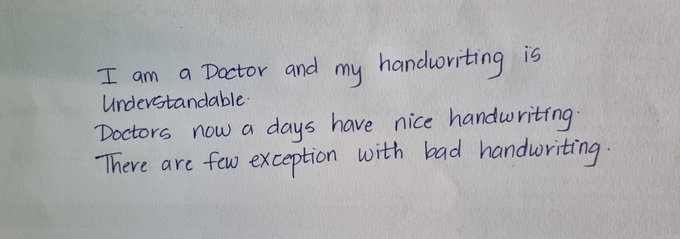 I am a Doctor and my handwriting is
Understandable.
Doctors now a days have nice handwriting.
There are few exception with bad handwriting.